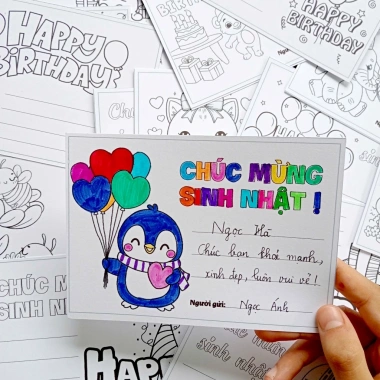 HAPPY
BIRTHDAY
HAPPY
BIRTHDAY
CHÚC MỪNG
SINH NHẬT !
Ngọc Hà
Chúc bạn khoẻ mạnh,
xinh đẹp, luôn vui vẻ !
Người gửi: Ngọc Ánh
CHÚC MỪNG
SINH NH
HAPP